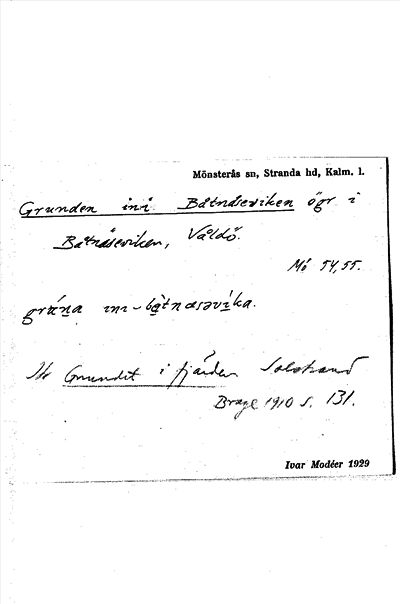 Mönsterås sn, Stranda hd, Kalm. l.
Grunden ini Båtnäseviken ögr i
Båtnäseviken, Våldö.
Mö 54,55.
Grundet i fjärden Solstrand
Brage 1910 s. 131.
Ivar Modéer 1929